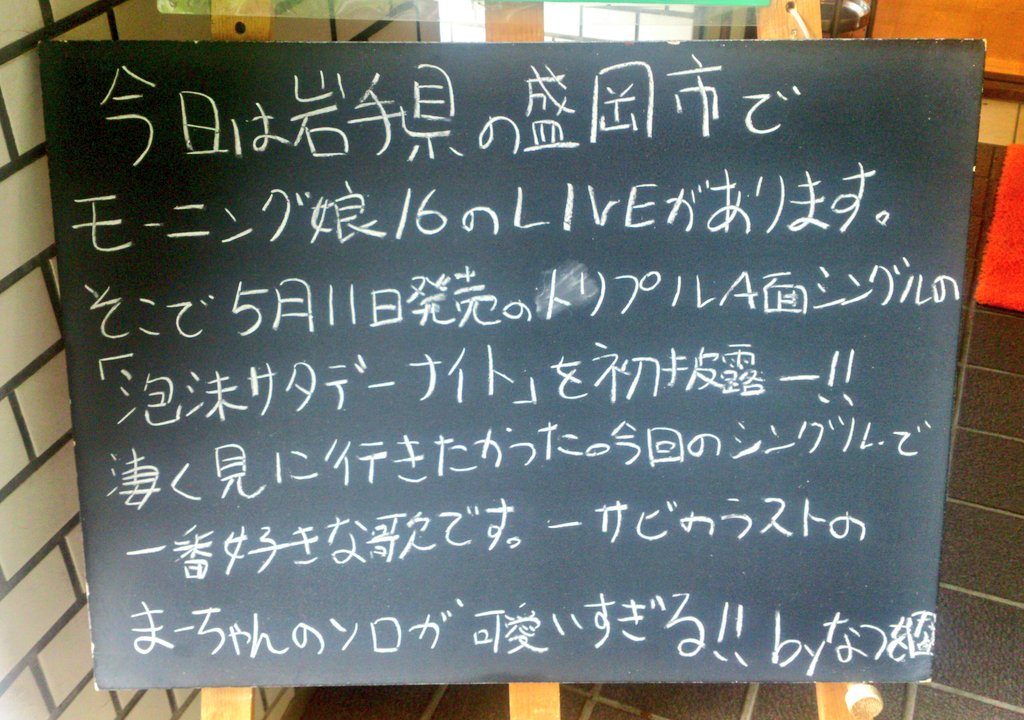 今日は岩手県の盛岡市で
モーニング娘16のLIVEがあります。
そこで5月11日発売のトリプルA面シングルの
「泡沫サタデーナイト」を初披露ー!!
凄く見に行きたかった。今回のシングルで
一番好きな歌です。一サビのラストの
まーちゃんのソロが可愛いすぎる!! byなつ